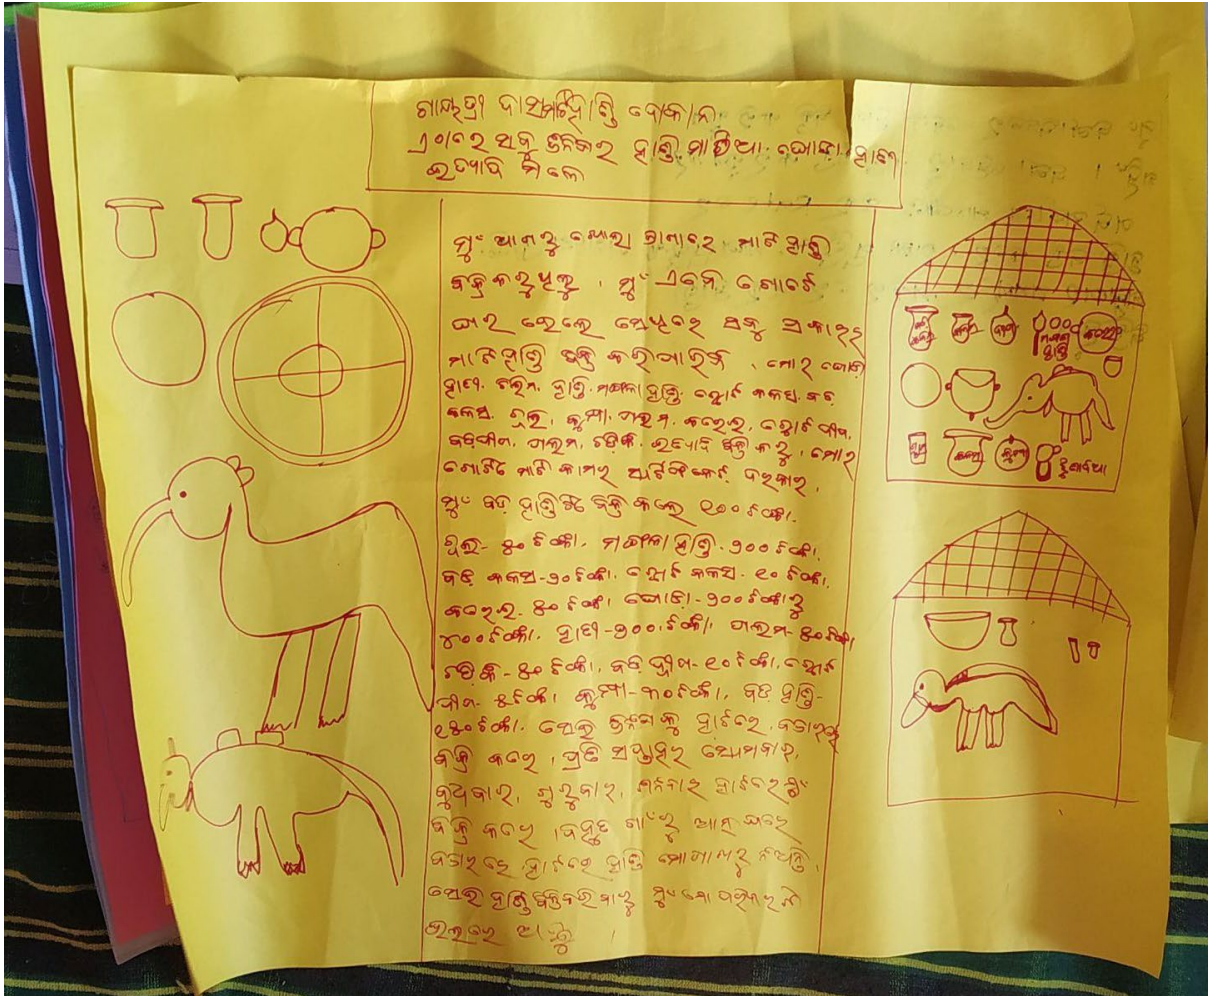 ଗାୟତ୍ରୀ ଦାସ ମାଟିହାଣ୍ଡି ଦୋକାନ
ଏଠାରେ ସବୁ ଜିନିଷର ହାଣ୍ଡି ମାଠିଆ ଘୋଡ଼ା ହାତୀ
ଇତ୍ୟାଦି ମିଳେ
ମୁଂ ଆଗରୁ ଖୋଲା ଜାଗାରେ ମାଟି ହାଣ୍ଡି
ବିକ୍ରି କରୁଥିଲୁ । ମୁଁ ଏବେ ଗୋଟେ
ଘର ହେଲେ ସେଥିରେ ସବୁ ପ୍ରକାର
ମାଟି ହାଣ୍ଡି ବିକ୍ରି କରିପାରିବି । ମୋର ଘୋଡ଼ା
ହାତୀ, ହାଣ୍ଡି, ମଙ୍ଗଳା ହାଣ୍ଡି, ଛୋଟ କଳସ, ବଡ଼
କଳସ, ଚୁଲି, କୁମ୍ପା, ଗଲମ, କରେଇ, ଛୋଟ ଦୀପ,
ବଡ଼ଦୀପ, ଗଲମ, ଇତ୍ୟାଦି ବିକ୍ରି କରୁ । ମୋର
ଗୋଟିଏ ମାଟି କାମର ସାର୍ଟିଫିକେଟ୍ ଦରକାର ।
ମୁଂ ବଡ଼ ହାଣ୍ଡିଟି ବିକ୍ରି କଲେ ୧୦୦ଟଙ୍କା ।
ଚୁଲି - ୫୦ ଟଙ୍କା, ମଙ୍ଗଳା ହାଣ୍ଡି - ୨୦୦ଟଙ୍କା,
ବଡ଼ କଳସ - ୨୦ଟଙ୍କା, ଛୋଟ କଳସ - ୧୦ ଟଙ୍କା,
କରେଇ - ୫୦ ଟଙ୍କା, ଘୋଡ଼ା - ୨୦୦ଟଙ୍କାରୁ
୪୦୦ଟଙ୍କା, ହାତୀ - ୨୦୦ଟଙ୍କା, ଗଲମ - ୫୦ଟଙ୍କା
୫୦ ଟଙ୍କା, ବଡ଼ ଦୀପ - ୧୦ ଟଙ୍କା, ଛୋଟ
ଦୀପ - ୫ଟଙ୍କା, କୁମ୍ପା - ୩୦ଟଙ୍କା, ବଡ଼ ହାଣ୍ଡି -
୧୫୦ଟଙ୍କା । ସେଇ ଜିନିଷକୁ ହାଟରେ, ବଜାରରେ
ବିକ୍ରି କରେ । ପ୍ରତି ସପ୍ତାହର ସୋମବାର,
ବୁଧବାର, ଗୁରୁବାର, ଶନିବାର ହାଟରେ ମୁଂ
ବିକ୍ରି କରେ । ବହୁତ ଗାଁରୁ ଆସି ଘରେ
ବଜାରରେ ହାଟରେ ହାଣ୍ଡି ମୋ ନିଅନ୍ତି ।
ସେଇ ହାଣ୍ଡି ବିକ୍ରିକରି ମୁଂ ମୋ ପରିବାର
ଭଲରେ ଅଛୁ ।
କଳସ
ଦୀପ
ମଙ୍ଗଳା
ହାଣ୍ଡି
କରେଇ
କଳସ
କୁମ୍ପା